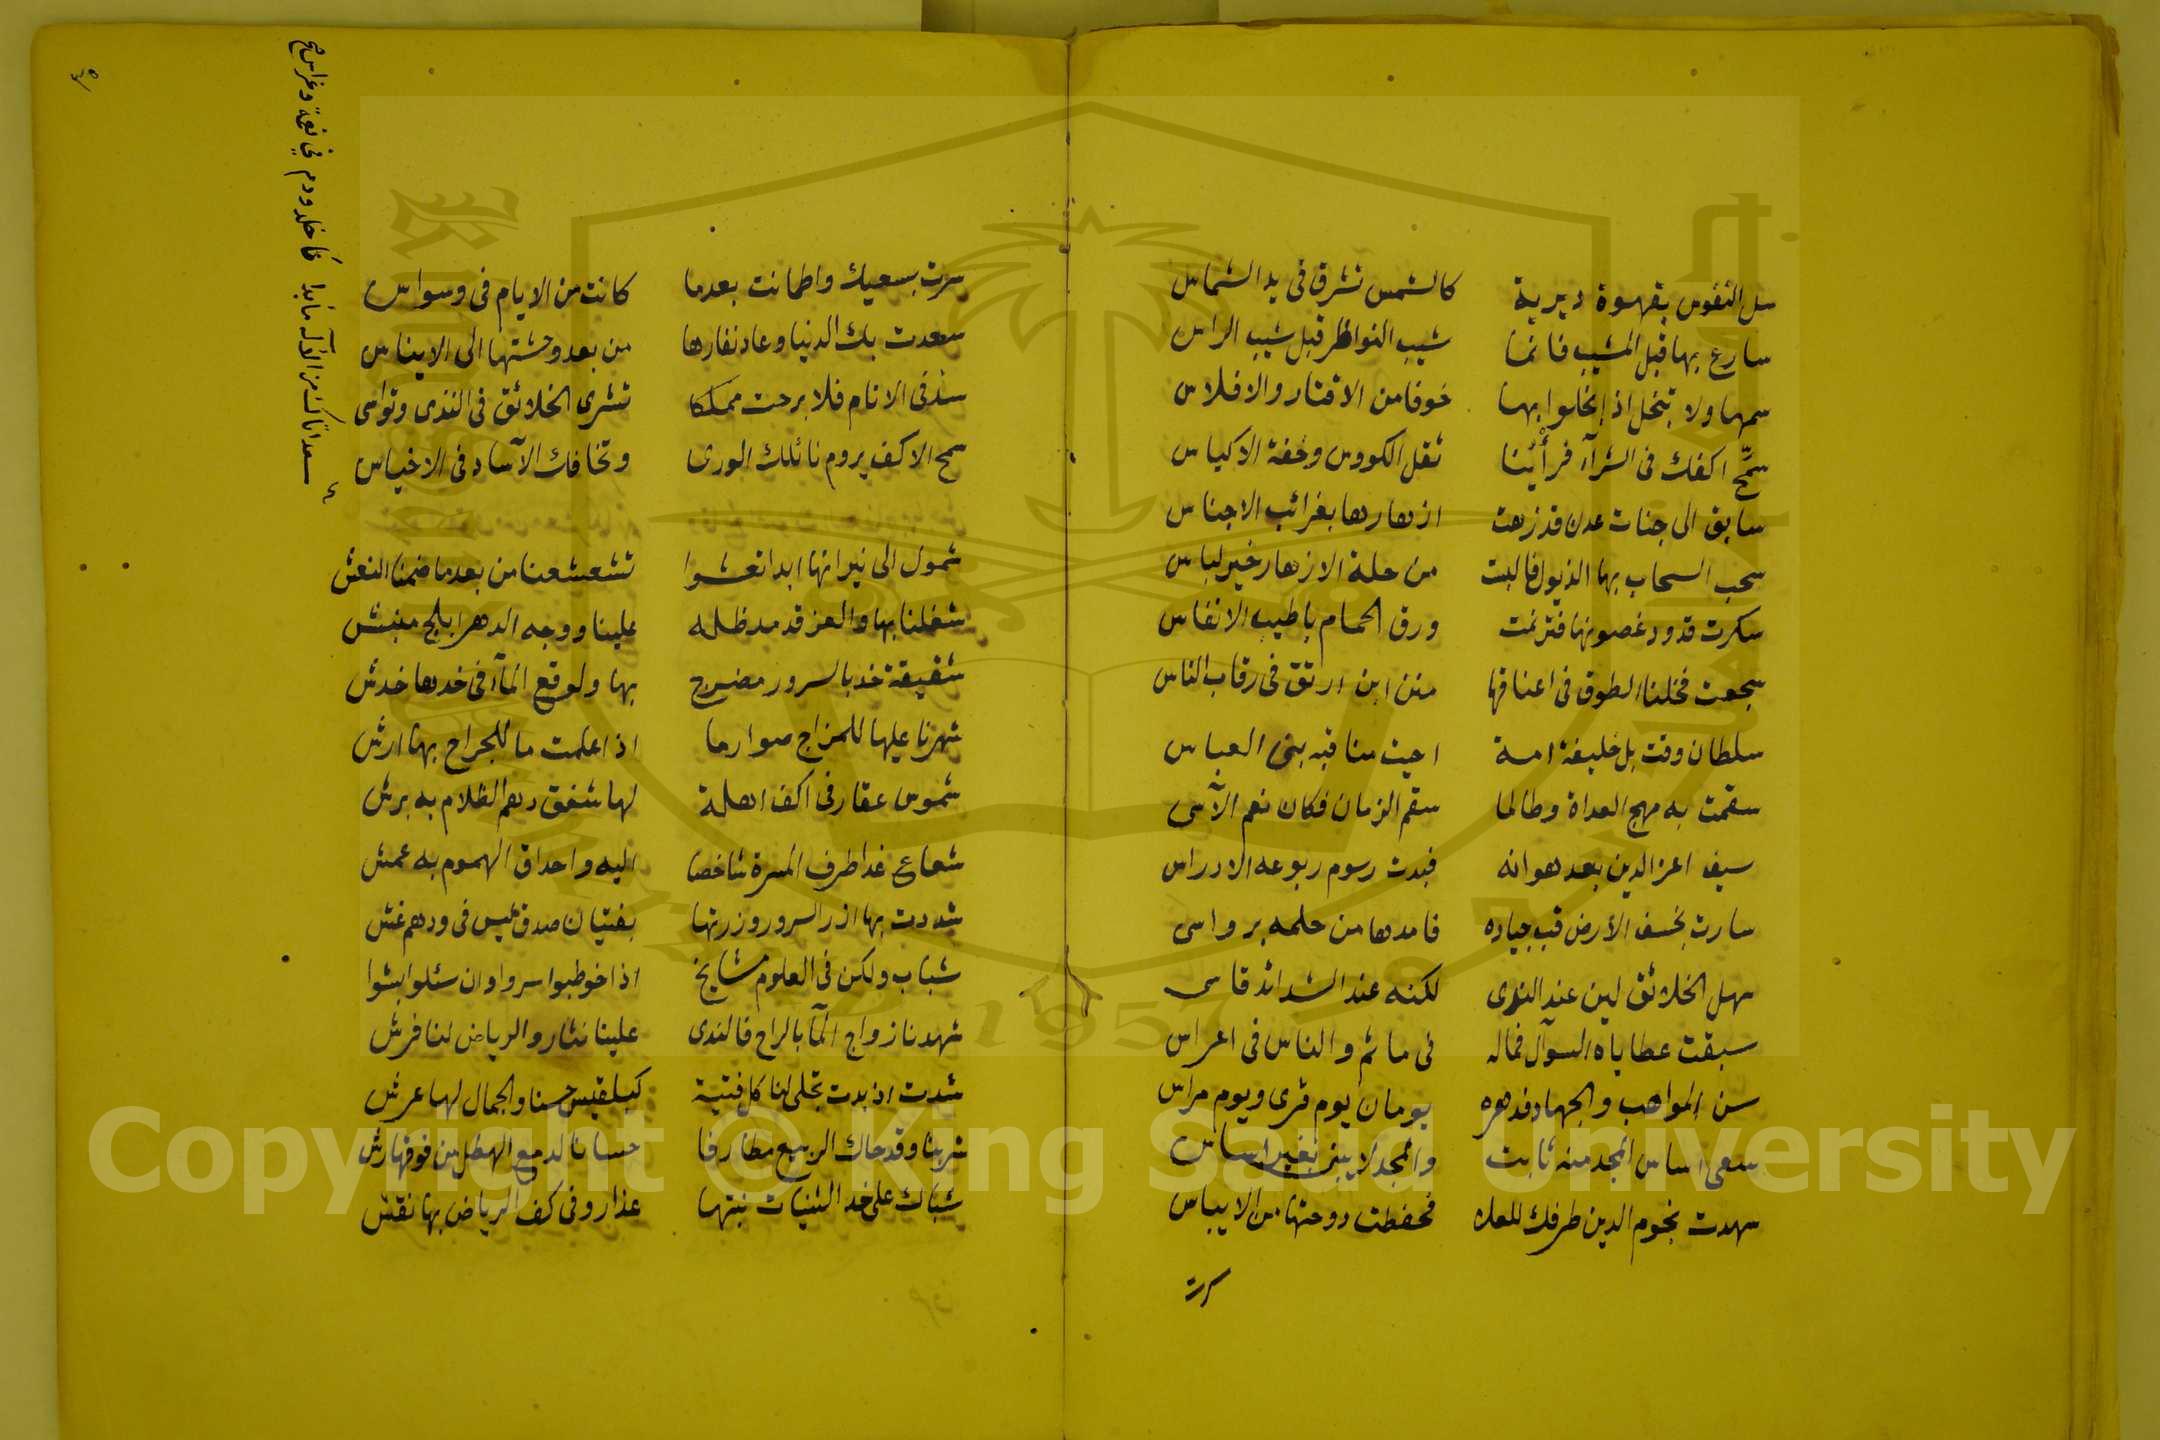 سل النفوس بقهوة ديرية كالشمس تشرق في يد الشماس
سارع بها قبل المشيب فانما شيب النواظر قبل شيب الراس
سمها ولا تبخل اذا بخلوا بها خوفا من الاقتار والافلاس
سمّح اكفك في الشرآء فرأينا ثقل الكووس وخفة الاكياس
سابق الى جنات عدن قد زهت ازهارها بغرائب الاجناس
سحب السحاب بها الذيول فالبست من حلة الازهار خير لباس
سكرت قدود غصونها فترنمت ورق الحمام باطيب الانفاس
سجعت فخلنا الطوق في اعناقها منن ابن ارتق في رقاب الناس
سلطان وقت بل خليفة امة احيت مناقبه بني العباس
سقمت به مهج العداة وطالما سقم الزمان فكان نعم الآسى
سيف اعز الدين بعد هوانه فبدت رسوم ربوعه الادراس
سارت بخسف الأرض قب جياده فامدها من حلمه برواسى
سهل الخلائق لين عند الندى لكنه عند الشدائد قاسى
سبقت عطاياه السوآل فماله في ماثم والناس في اعراس
سن المواهب والجهاد فدهره يومان يوم قرى ويوم مراس
سعى اساس المجد منه ثابت والمجد لا يبنى بغير اساس
سهدت نجوم الدين طرفك للعلا فحفظت دوحتها من الايباس
سرت
سرت بسعيك واطمانت بعدما كانت من الايام في وسواس
سعدت بك الدنيا وعاد نفارها من بعد وحشتها الى الايناس
سد في الانام فلا برحت مملكا تشرى الخلائق في الندى وتواسى
سمح الاكف يروم نائلك الورى وتخافك الآساد في الاخياس
شمول الى نيرانها ابدا تعشوا تشعشعنا من بعد ما ضمنا النعش
شغلنا بها والعز قد مد ظله علينا ووجه الدهر ابلج منبش
شقيقة خد بالسرور مضرج بها ولوقع المآء في خدها خدش
شهرنا عليها للمزاج صوارما اذا علمت ما للجراح بها ارش
شموس عقار في اكف اهلة لها شفق دهم الظلام به برش
شعاع غدا طرف المسرة شاخصا اليه واحداق الهموم به عمش
شددت بها ازر السرور وزرتها بفتيان صدق ليس في ودهم غش
شباب ولكن في العلوم مشايخ اذا خوطبوا سروا وان سئلوا بشوا
شهدنا زواج المآ بالراح فالندى علينا نثار والرياض لنا فرش
شدت اذ بدت تجلى لنا كل فتية كبلقيس حسنا والجمال لها عرش
شربنا وقد حاك الربيع مطارفا حسانا لدمع الهطل من فوقها رش
شباك على خد الثنيات نبتها عذار وفي كف الرياض بها نقش